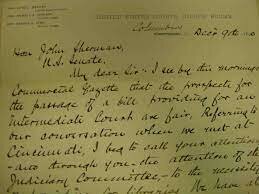 UNITED STATES COURTS, JUDGES' ROOMS
Columbus Dec 9th
Hon John Sherman,
U.S. Senate.
My dear Sir: I see by this morning's
Commercial Gazette that the prospects for
the passage of a bill, providing for an
Intermediate Court are fair. Referring to
our conversation when we met at
Cincinnati, I beg to call your attention,
and through you the attention of the
Judiciary Committee, to the necessity
libraries. We have a